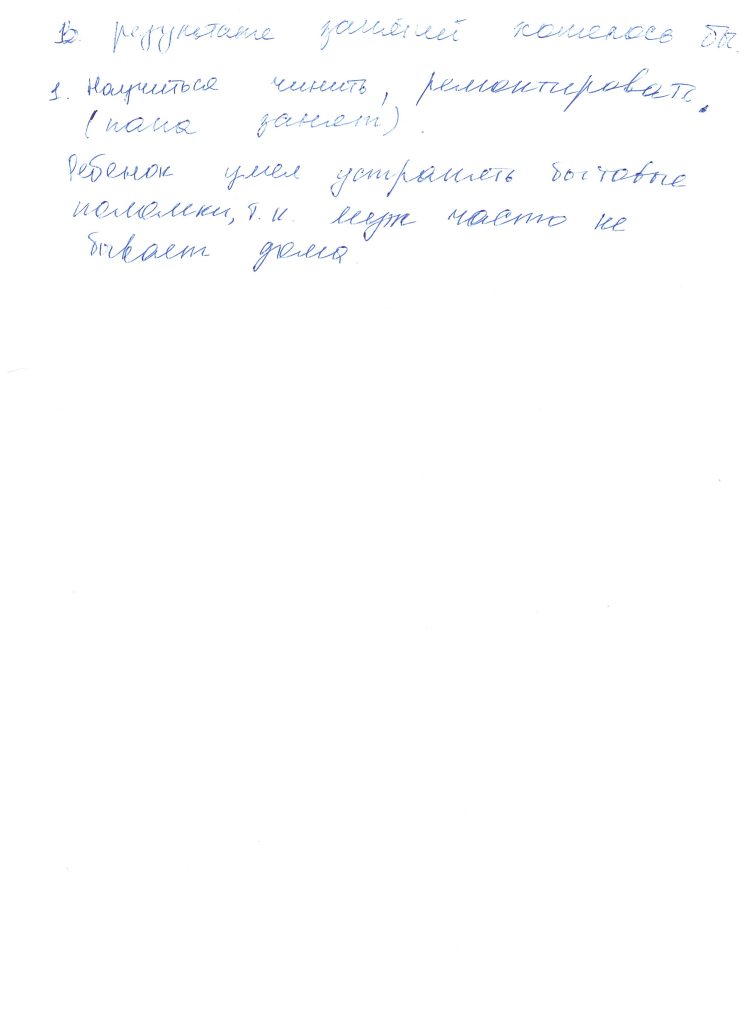 В результате занятий хотелось бы
1. Научиться чинить, ремонтировать.
(папа занят).
Ребенок умел устранять бытовые
поломки, т.к. муж часто не
бывает дома